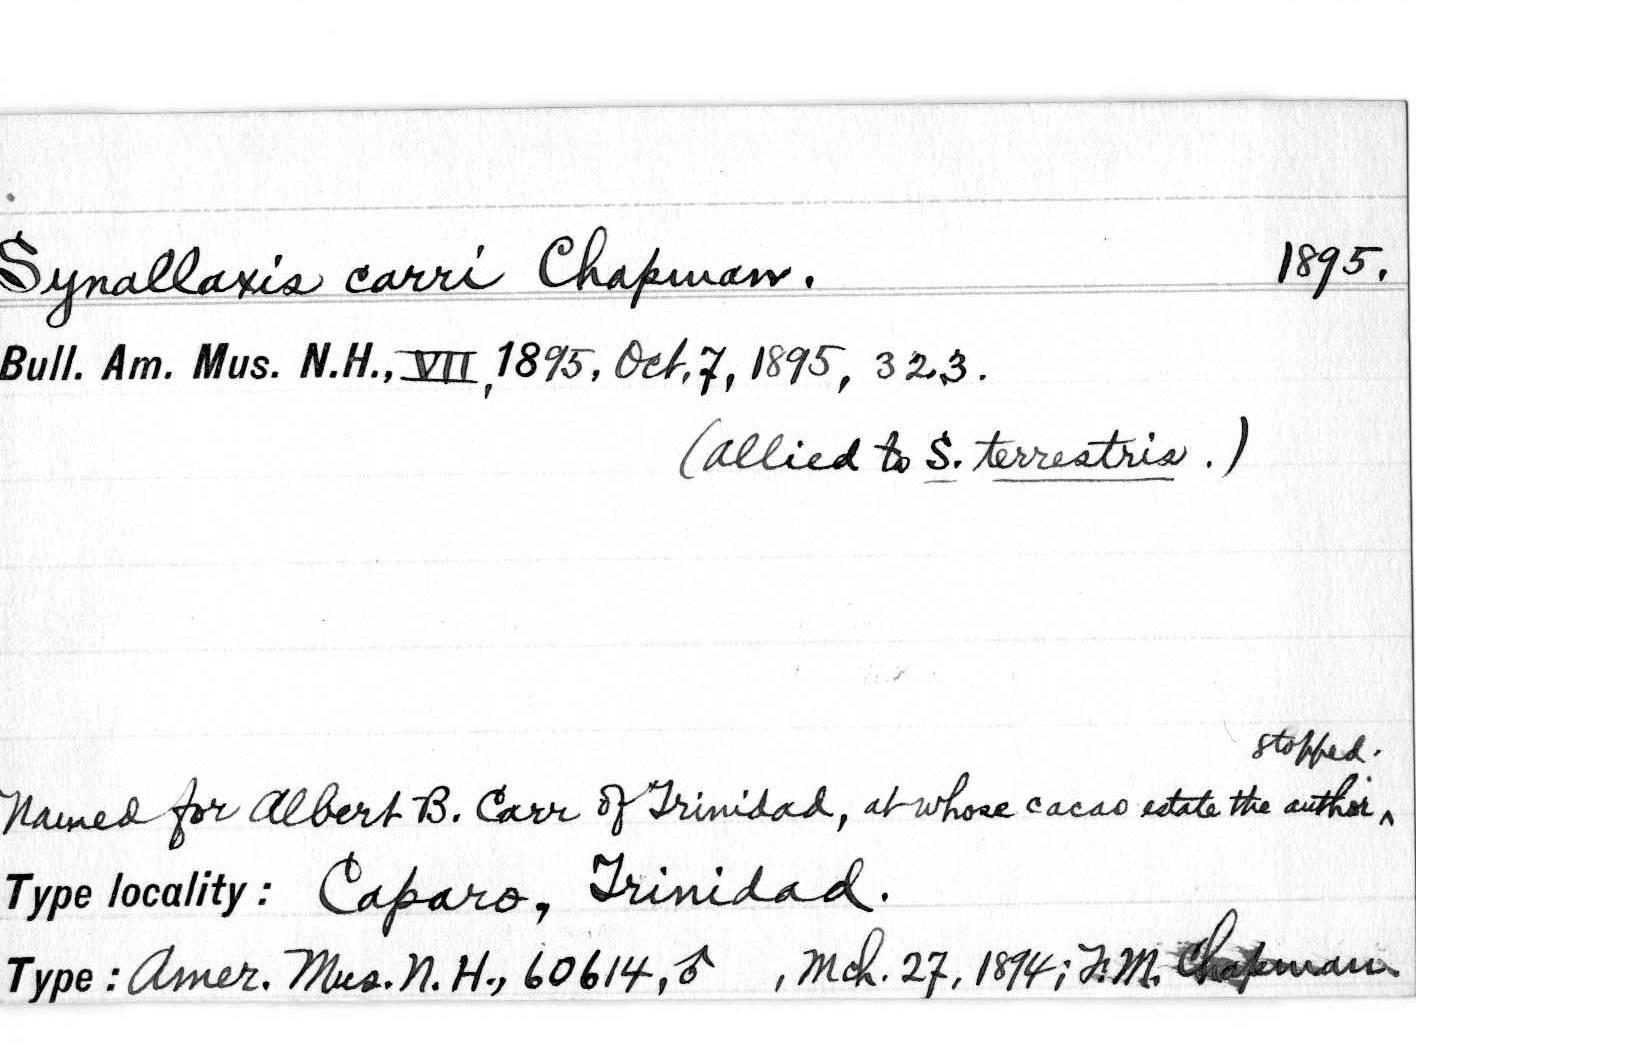 Synallaxis carri Chapman. 1895.
Bull. Am. Mus. N.H., VII, 1895, Oct. 7, 1895, 323.
(allied to S. terrestris.)
stopped.
Named for Albert B. Carr of Trinidad, at whose cacao estate the author ^
Type locality: Caparo, Trinidad.
Type: Amer. Mus. N. H., 60614, ♂ , Mch. 27, 1894; F. M. Chapman